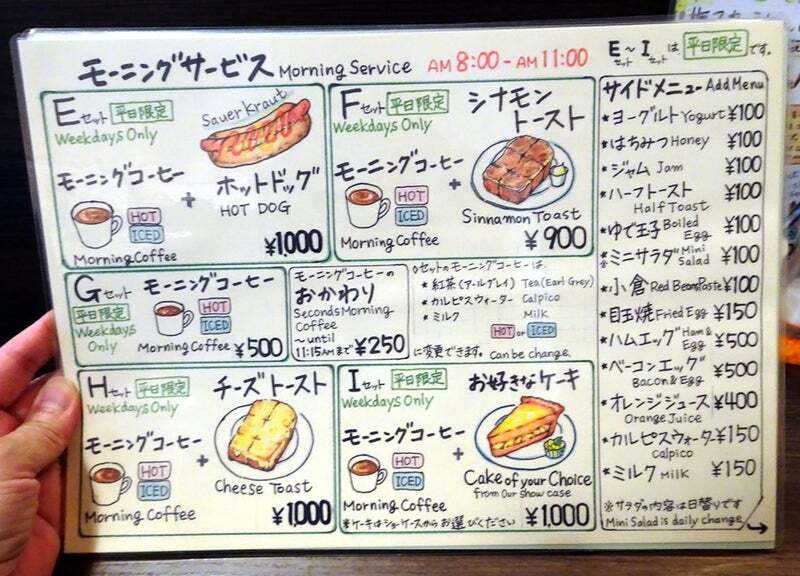 モーニングサービス Morning Service AM 8:00 - AM 11:00
Eセット〜Iセットは、平日限定です。
Eセット 平日限定
Weekdays Only
Sauer Kraut
モーニングコーヒー
+
ホットドッグ
HOT DOG
HOT
ICED
Morning Coffee
¥1,000
Fセット 平日限定
Weekdays Only
シナモン
トースト
モーニングコーヒー
+
HOT
ICED
Sinnamon Toast
Morning Coffee
¥900
Gセット
平日限定
Weekdays
Only
モーニングコーヒー
HOT
ICED
Morning Coffee ¥500
モーニングコーヒーの
おかわり
Seconds Morning
Coffee
〜until
11:15AMまで ¥250
◇セットのモーニングコーヒーは、
* 紅茶(アールグレイ) Tea(Earl Grey)
* カルピスウォーター Calpico
* ミルク Milk
HOT or ICED
に変更できます。can be change.
Hセット 平日限定
Weekdays Only
チーズトースト
モーニングコーヒー
+
HOT
ICED
Cheese Toast
Morning Coffee
¥1,000
Iセット 平日限定
Weekdays Only
お好きなケーキ
モーニングコーヒー
+
HOT
ICED
Cake of your Choice
from our show case
Morning Coffee
※ケーキはショーケースからお選びください ¥1,000
サイドメニュー Add Menu
* ヨーグルト Yogurt ¥100
* はちみつ Honey ¥100
* ジャム Jam ¥100
* ハーフトースト ¥100
Half Toast
* ゆで玉子 Boiled Egg ¥100
* ミニサラダ Mini Salad ¥100
※
* 小倉 Red Bean Paste ¥100
* 目玉焼 Fried Egg ¥150
* ハムエッグ Ham & Egg ¥500
* ベーコンエッグ ¥500
Bacon & Egg
* オレンジジュース ¥400
Orange Juice
* カルピスウォーター ¥150
Calpico
* ミルク Milk ¥150
※サラダの内容は日替りです
Mini Salad is daily change.